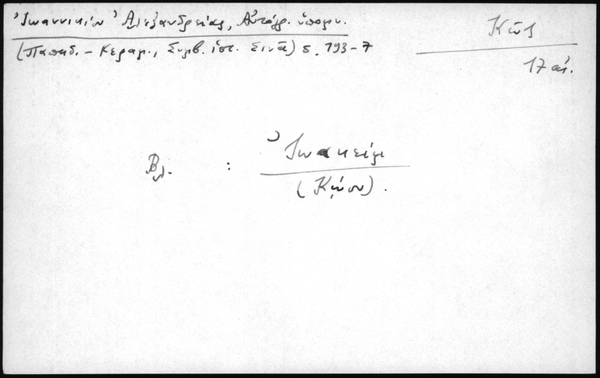 Ἰωαννικίου Ἀλεξανδρείας, Αὐτόγρ. ὑπόμν.
(Παπαδ. - Κεραμ., Συμβ. ἱστ. Σινᾶ) σ. 193-7
Κῶς
17 αἰ.
Βλ. : Ἰωακείμ
(Κῴου).